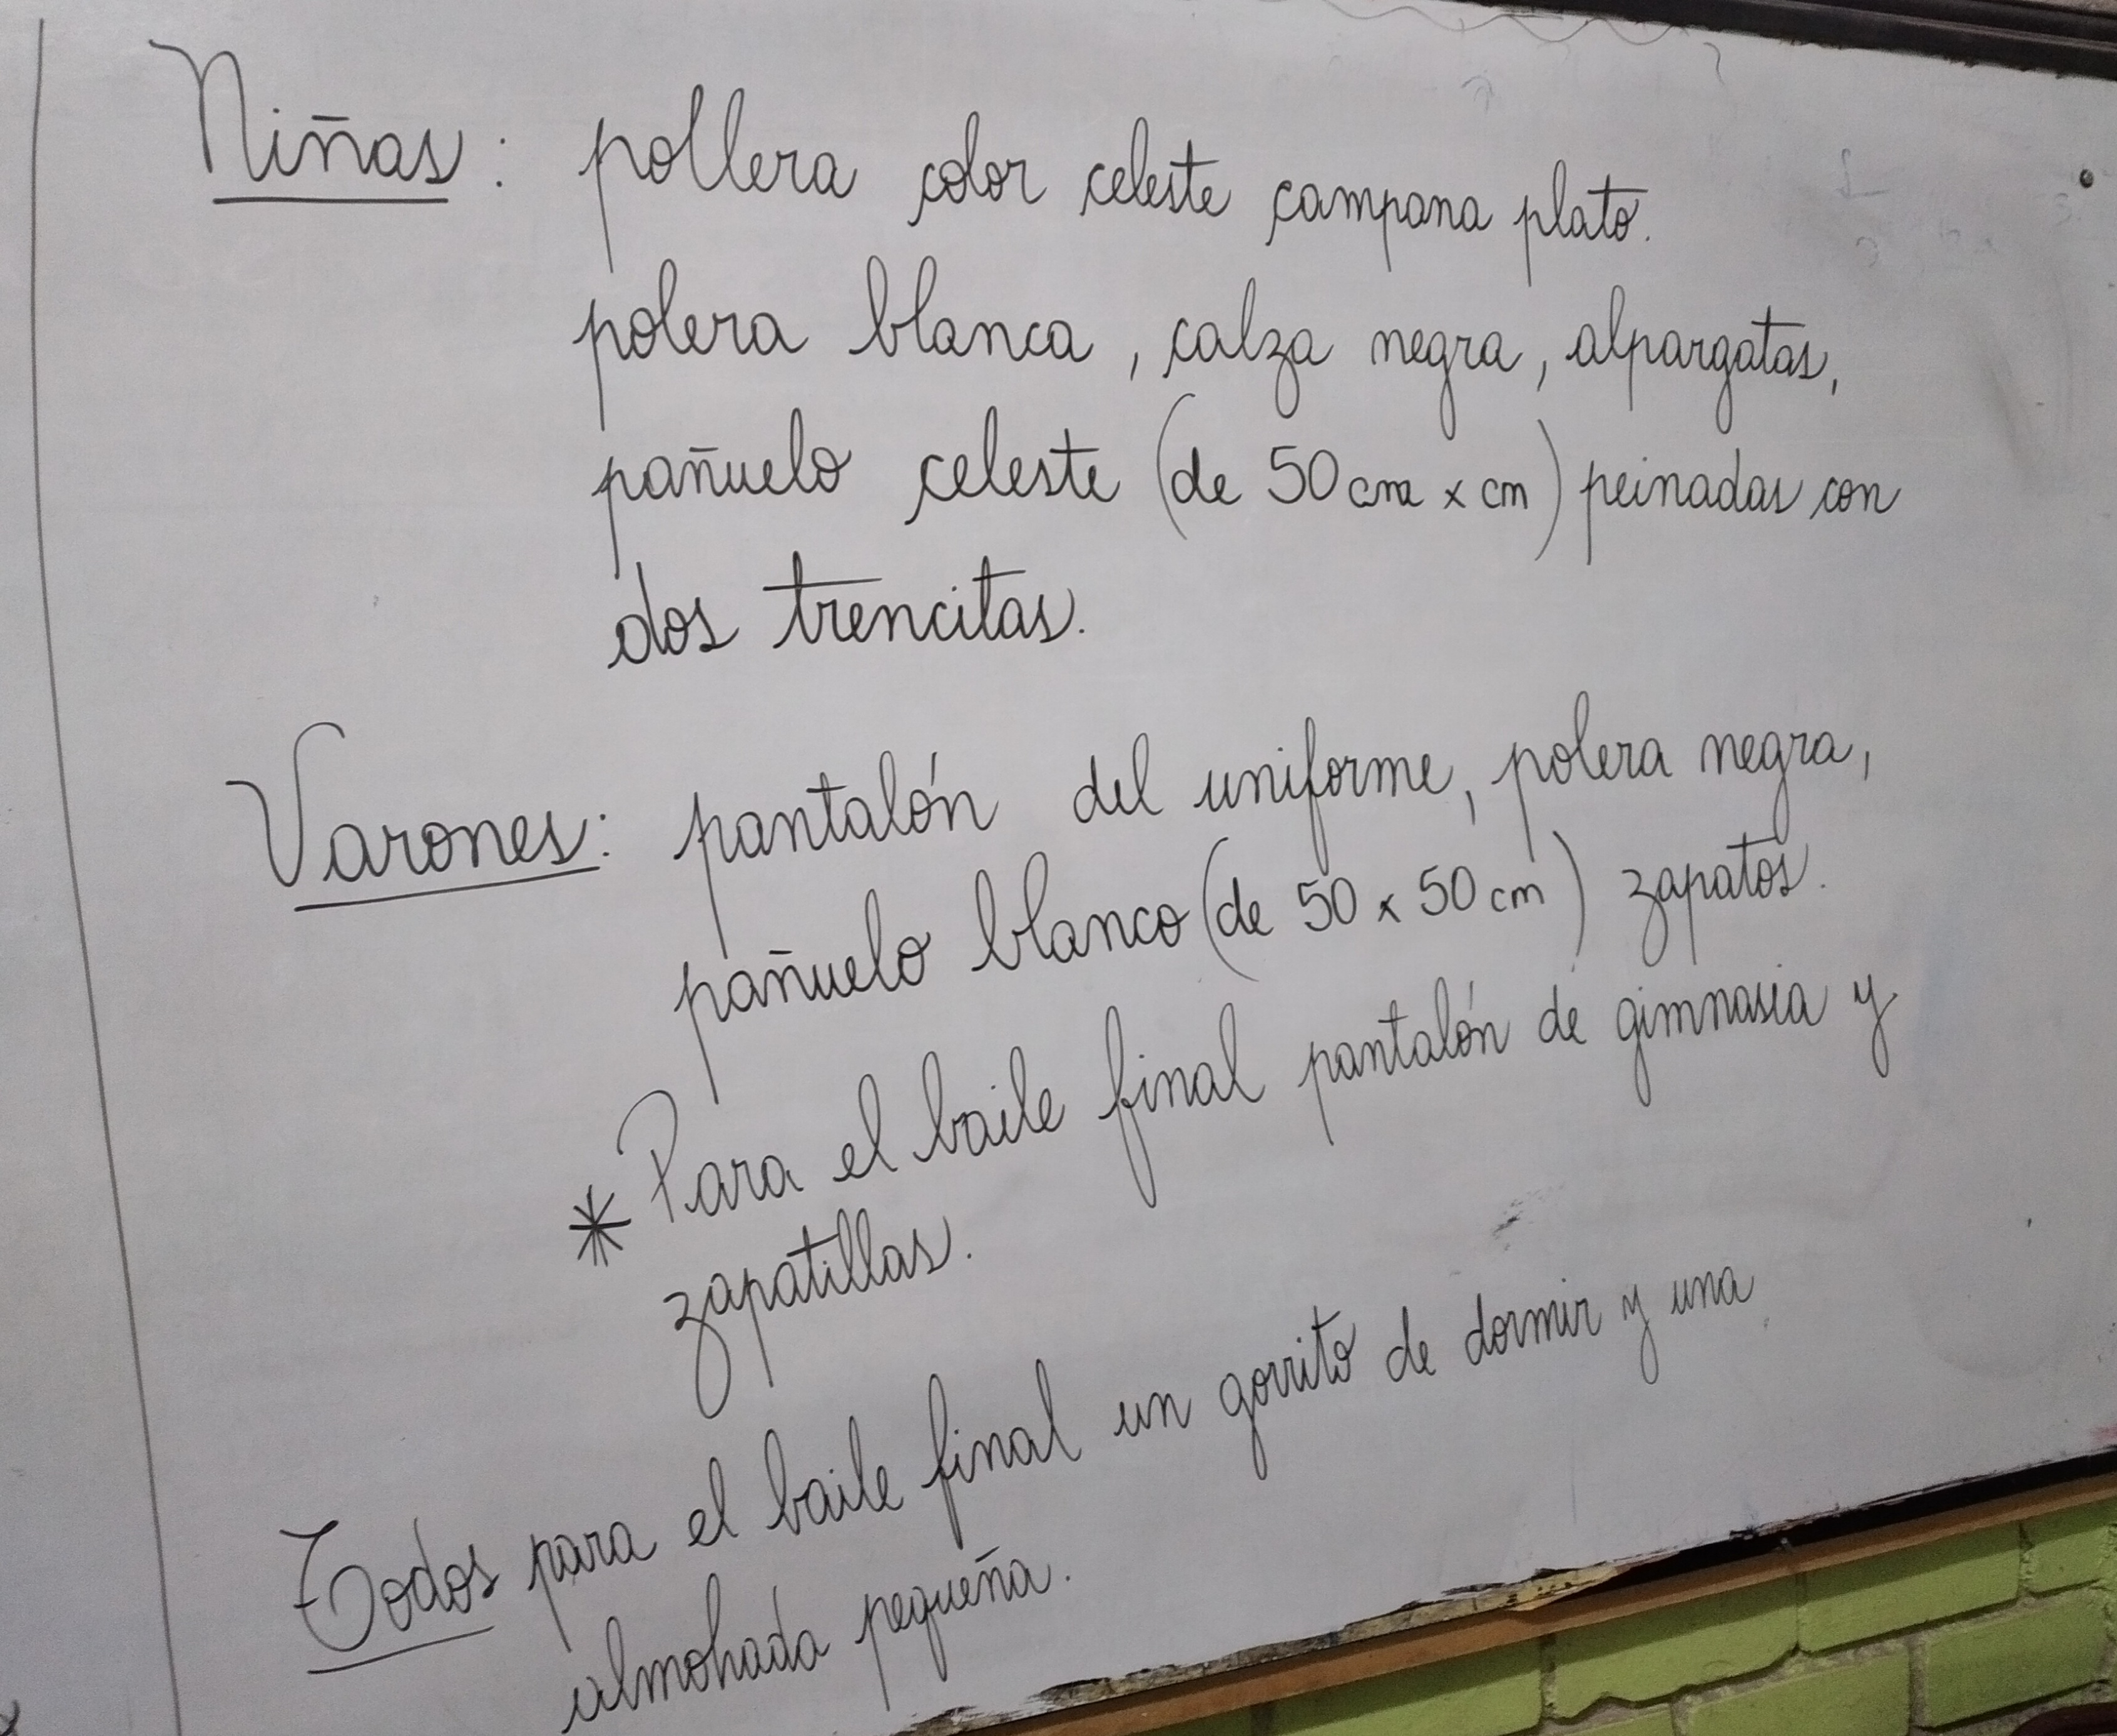 Niñas: pollera color celeste campana plato.
polera blanca, calza negra, alpargatas,
pañuelo celeste (de 50 cm x cm) peinadas con
dos trencitas.
Varones: pantalón del uniforme, polera negra,
pañuelo blanco (de 50 x 50 cm) zapatos.
* Para el baile final pantalón de gimnasia y
zapatillas.
Todos para el baile final un gorrito de dormir y una
almohada pequeña.